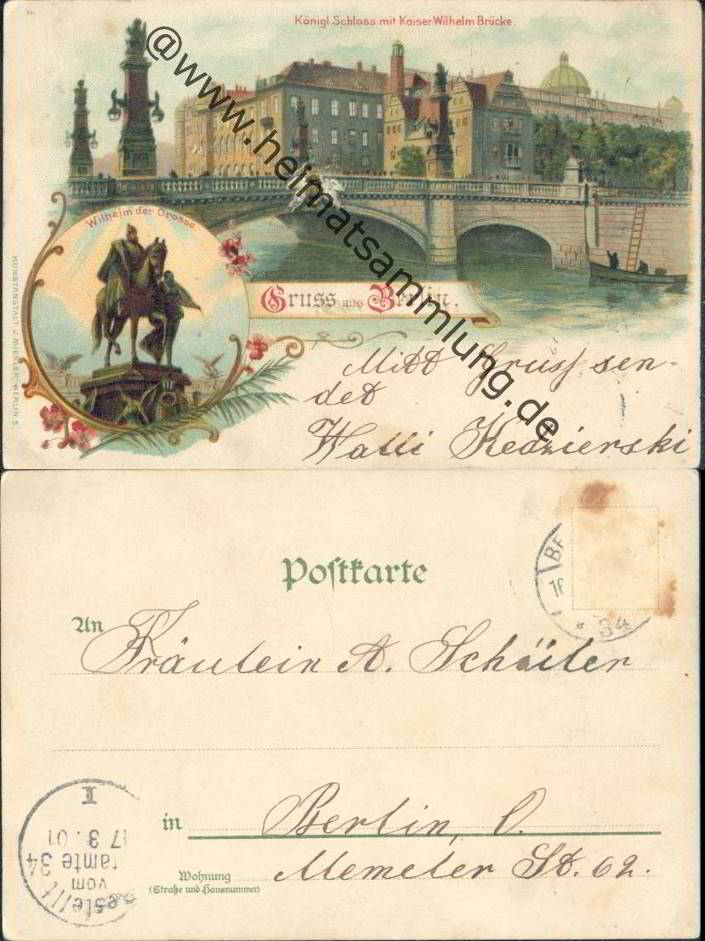 Königl Schloss mit Kaiser Wilhelm Brücke.
@www.heimatsammlung.de
Wilhelm der Grosse
KUNSTANSTALT J. MIESLER, BERLIN S
Gruss aus Berlin.
Mitt Gruss sen-
det
Walli Kedzierski
Postkarte
An
Fräulein A. Schäiler
in Berlin, O.
Wohnung
(Straße und Hausnummer)
Memeler St. 62.
BE
16
* 34
I
17 3. 01
ramte 34
vom
estellt